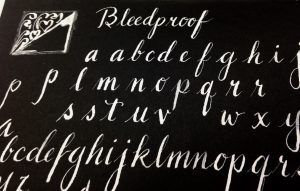 Bleedproof
a a b c d e f g h i j
p p l m n o p q r r
s s t u v w x y
a
b c d e f g h i j k l m n o p q r
z